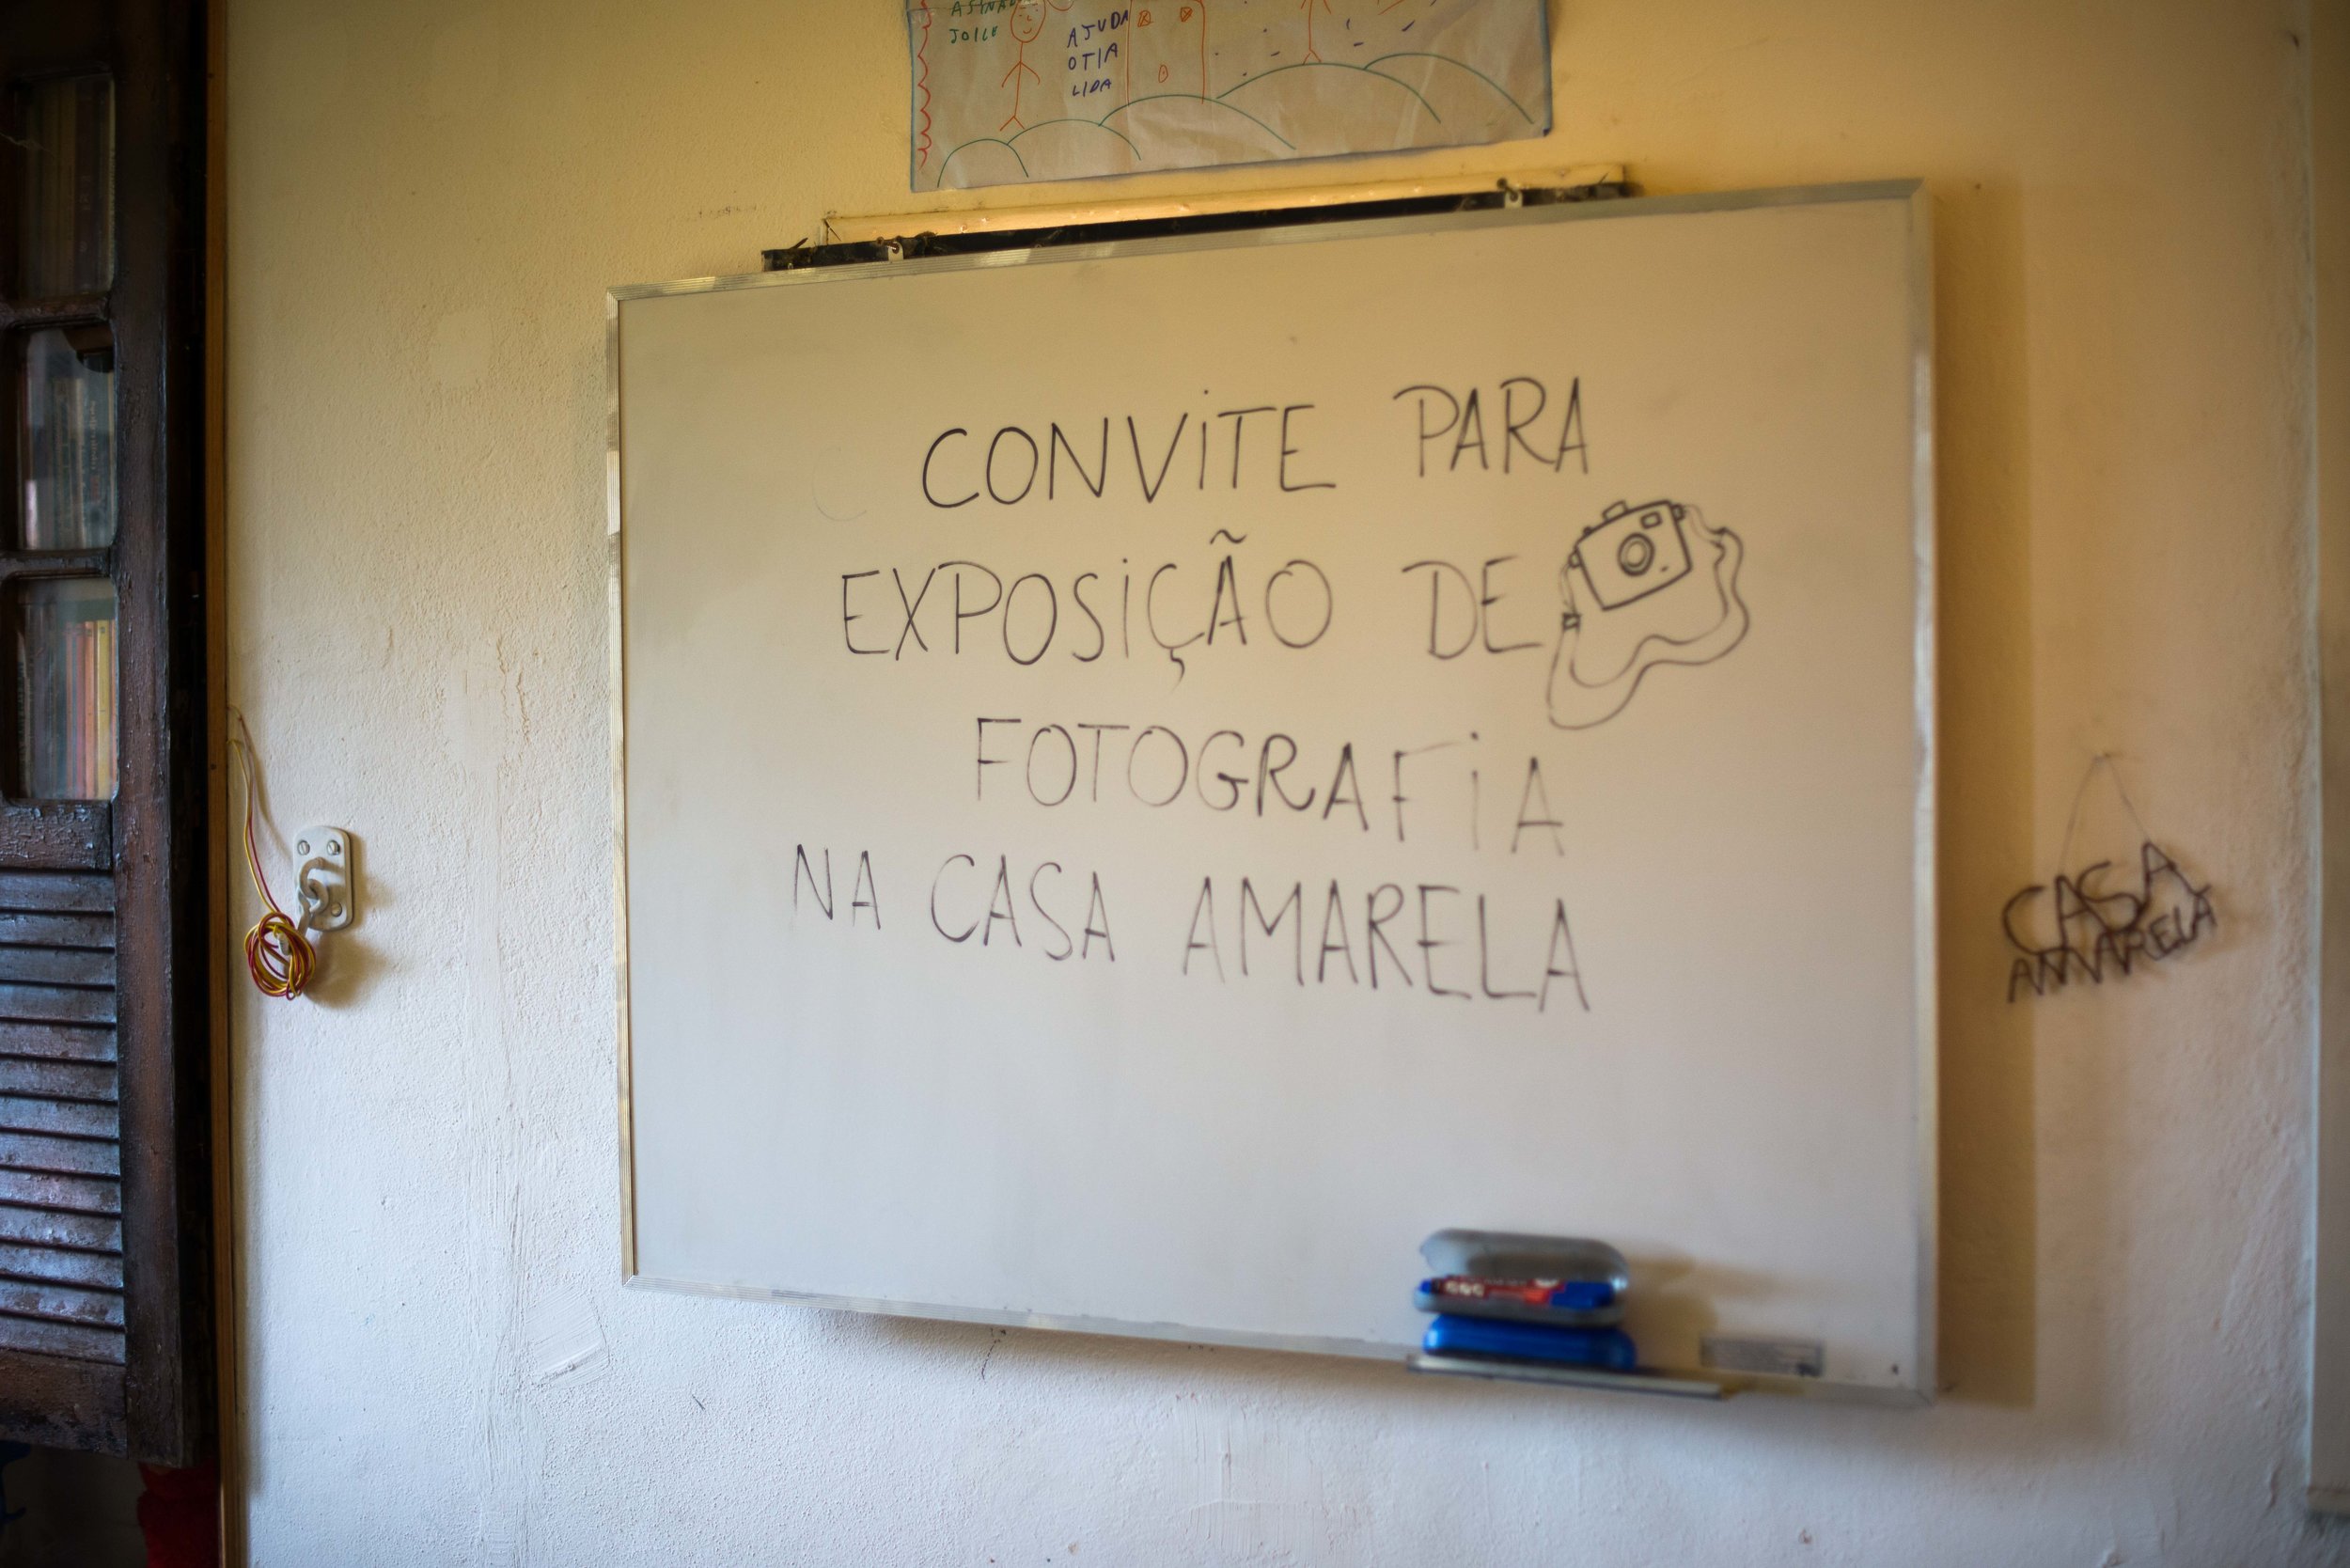 JOICE
AJUDA
OTIA
LIDA
CONViTE PARA
EXPOSiÇÃO DE
FOTOGRAFiA
NA CASA AMARELA
CASA
AMARELA